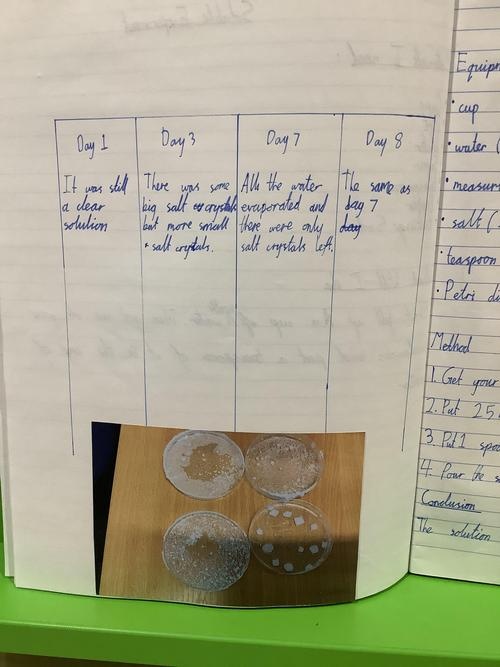 Day 1
It was still
a clear
solution
Day 3
There was some
big salt crystals
but more small
salt crystals.
Day 7
All the water
evaporated and
there were only
salt crystals left.
Day 8
The same as
day 7
day
Equipm
• cup
• water (
• measuri
• salt (
• teaspoon
• Petri di
Method
1. Get your
2. Put 25
3. Put 1 spoo
4. Pour the s
Conclusion
The solution